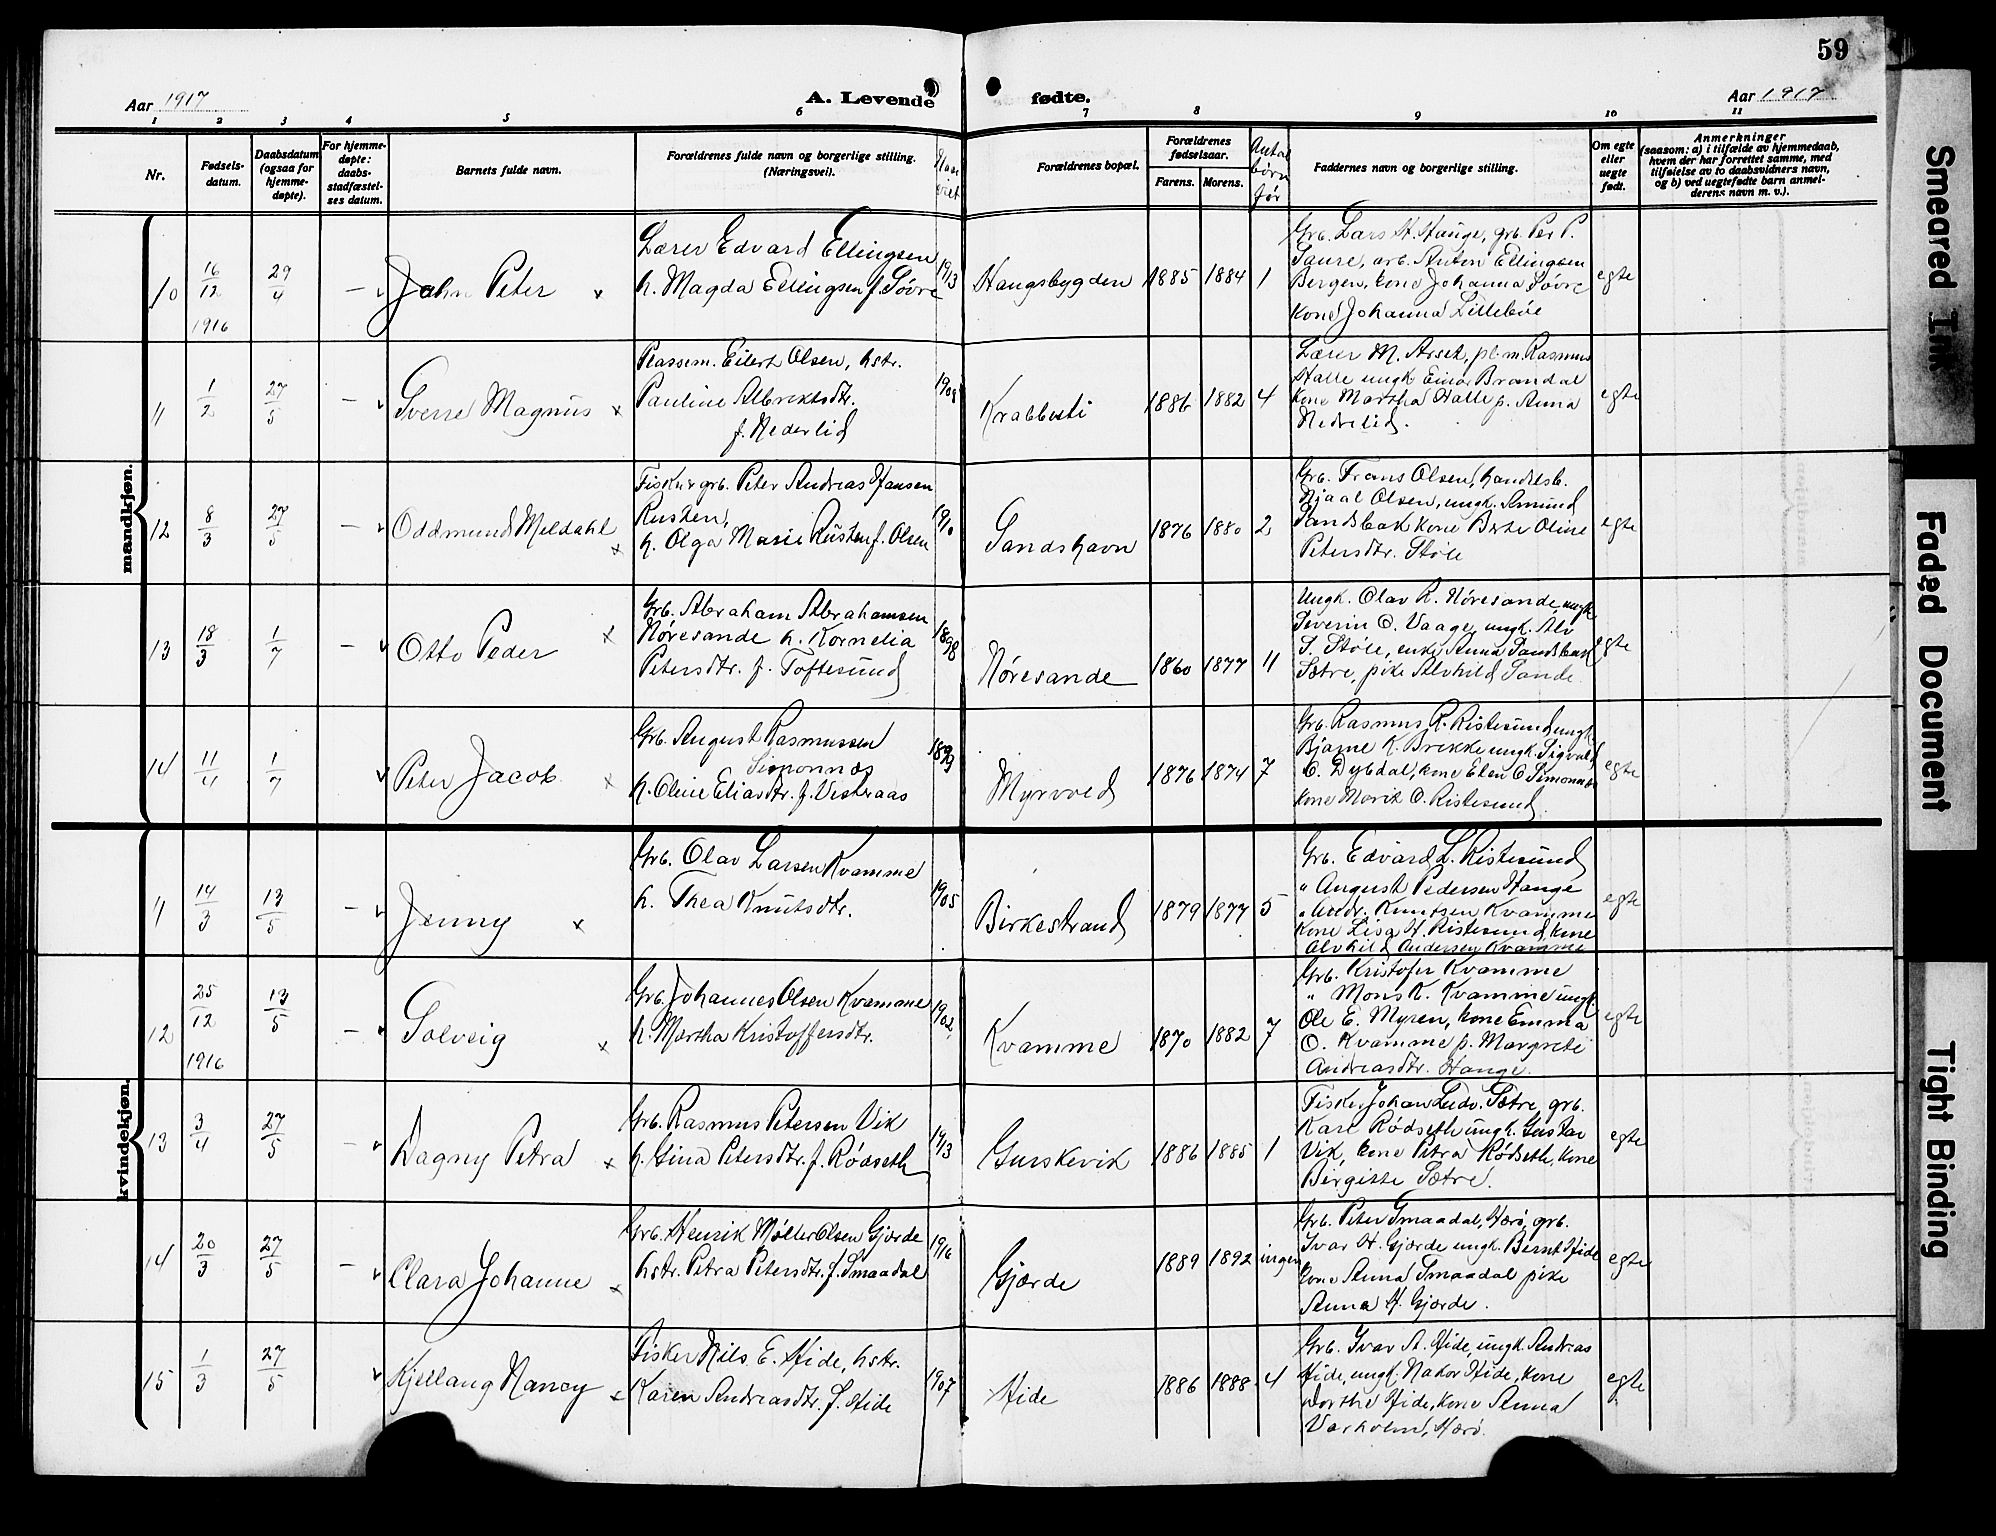 59
Aar 1917
A. Levende
fødte.
Aar 1917
1 2 3 4 5 6 7 8 9 10 11
Nr.
Fødsels-
datum.
Daabsdatum
(ogsaa for
hjemme-
døpte).
For hjemme-
døpte:
daabs-
stadfæstel-
ses datum.
Barnets fulde navn.
Forældrenes fulde navn og borgerlige stilling.
(Næringsvei).
Forældrenes bopæl.
Forældrenes
fødselsaar.
Farens. Morens.
Antal
børn
før
Faddernes navn og borgerlige stilling.
Om egte
eller
uegte
født.
Anmerkninger
(saasom: a) i tilfælde av hjemmedaab,
hvem der har forrettet samme, med
tilføielse av to daabsvidners navn,
og b) ved uegtefødte barn anmel-
derens navn m. v.).
mandkjøn.
10
16/12
1916
29/4
—
John Peter
Lærer Edvard Ellingsen
h. Magda Ellingsen f. Søvre
1913
Haugsbygden
1885 1884 1
Grb. Lars H. Hauge, grb. Per P.
Saure, arb. Anton Ellingsen
Bergen, kone Johanna Søvre
kone Johanna Lillebøe
egte
11
1/2
27/5
—
Sverre Magnus
Plassem. Eilert Olsen, hstr.
Pauline Albrektsdtr.
f. Nederlid
1908
Krabbesti
1886 1882 4
Lærer M. Arset, pl.m. Rasmus
Halle ungk. Einar Brandal
kone Martha Halle p. Anna
Nedrelid.
egte
12
8/3
27/5
—
Oddmund Meldahl
Fisker grb. Peter Andreas Hansen
Rusten,
h. Olga Marie Rusten f. Olsen
1910
Sandshavn
1876 1880 2
Grb. Frans Olsen, handelsb.
Njaal Olsen, ungk. Amund
Sandsbak kone Berte Oline
Petersdtr. Støle
egte
13
18/3
1/7
—
Otto Peder
Grb. Abraham Abrahamsen
Nøresande h. Kornelia
Petersdtr. f. Toftesund
1898
Nøresande
1860 1877 11
Ungk. Olav R. Nøresande, ungk.
Severin O. Vaage, ungk. Alv
S. Støle, enke Anna Sandsbak
Sætre, pike Alvhild Sande
egte
14
11/4
1/7
Peter Jacob
Grb. August Rasmussen
Simonnæs
h. Oline Eliasdtr. f. Vestraas
1899
Myrvold
1876 1874 7
Grb. Rasmus R. Ristesund, ungk.
Bjarne K. Brekke ungk. Sigvald
C. Dybdal, kone Elen O. Simonnæs
kone Marit O. Ristesund
egte
kvindekjøn.
11
14/3
13/5
—
Jenny
Grb. Olav Larsen Kvamme
h. Thea Knutsdtr.
1905
Birkestrand
1879 1877 5
Grb. Edvard L. Ristesund
" August Pedersen Hauge
" Andr. Knutsen Kvamme
kone Lisa H. Ristesund, kone
Alvhild Andersen Kvamme
egte
12
25/12
1916
13/5
—
Solveig
Grb. Johannes Olsen Kvamme
h. Martha Kristoffersdtr.
1902
Kvamme
1870 1882 7
Grb. Kristofer Kvamme
" Mons K. Kvamme ungk.
Ole E. Myren, kone Emma
O. Kvamme p. Margrete
Andreasdtr. Hauge.
egte
13
3/4
27/5
—
Dagny Petra
Grb. Rasmus Petersen Vik
h. Gina Petersdtr. f. Rødseth
1913
Gurskevik
1886 1885 1
Fisker Johan Ludv. Sætre, grb.
Karl Rødseth ungk. Gustav
Vik, kone Petra Rødseth, kone
Birgitte Sætre.
egte
14
20/3
27/5
—
Clara Johanne
Grb. Henrik Møller Olsen Gjærde
hstr. Petra Petersdtr. f. Smaadal
1916
Gjærde
1889 1892 ingen
Grb. Peter Smaadal, Herø, grb.
Ivar H. Gjærde ungk. Bernt Hide
kone Anna Smaadal pike
Anna H. Gjærde.
egte
15
1/3
27/5
Kjellaug Nancy
Fisker Nils E. Hide, hstr.
Karen Andreasdtr. f. Hide
1907
Hide
1886 1888 4
Grb. Ivar A. Hide, ungk. Andreas
Hide, ungk. Nakor Hide, kone
Dorthe Hide, kone Anna
Varholm, Herø.
egte
Smeared Ink
Faded Document
Tight Binding